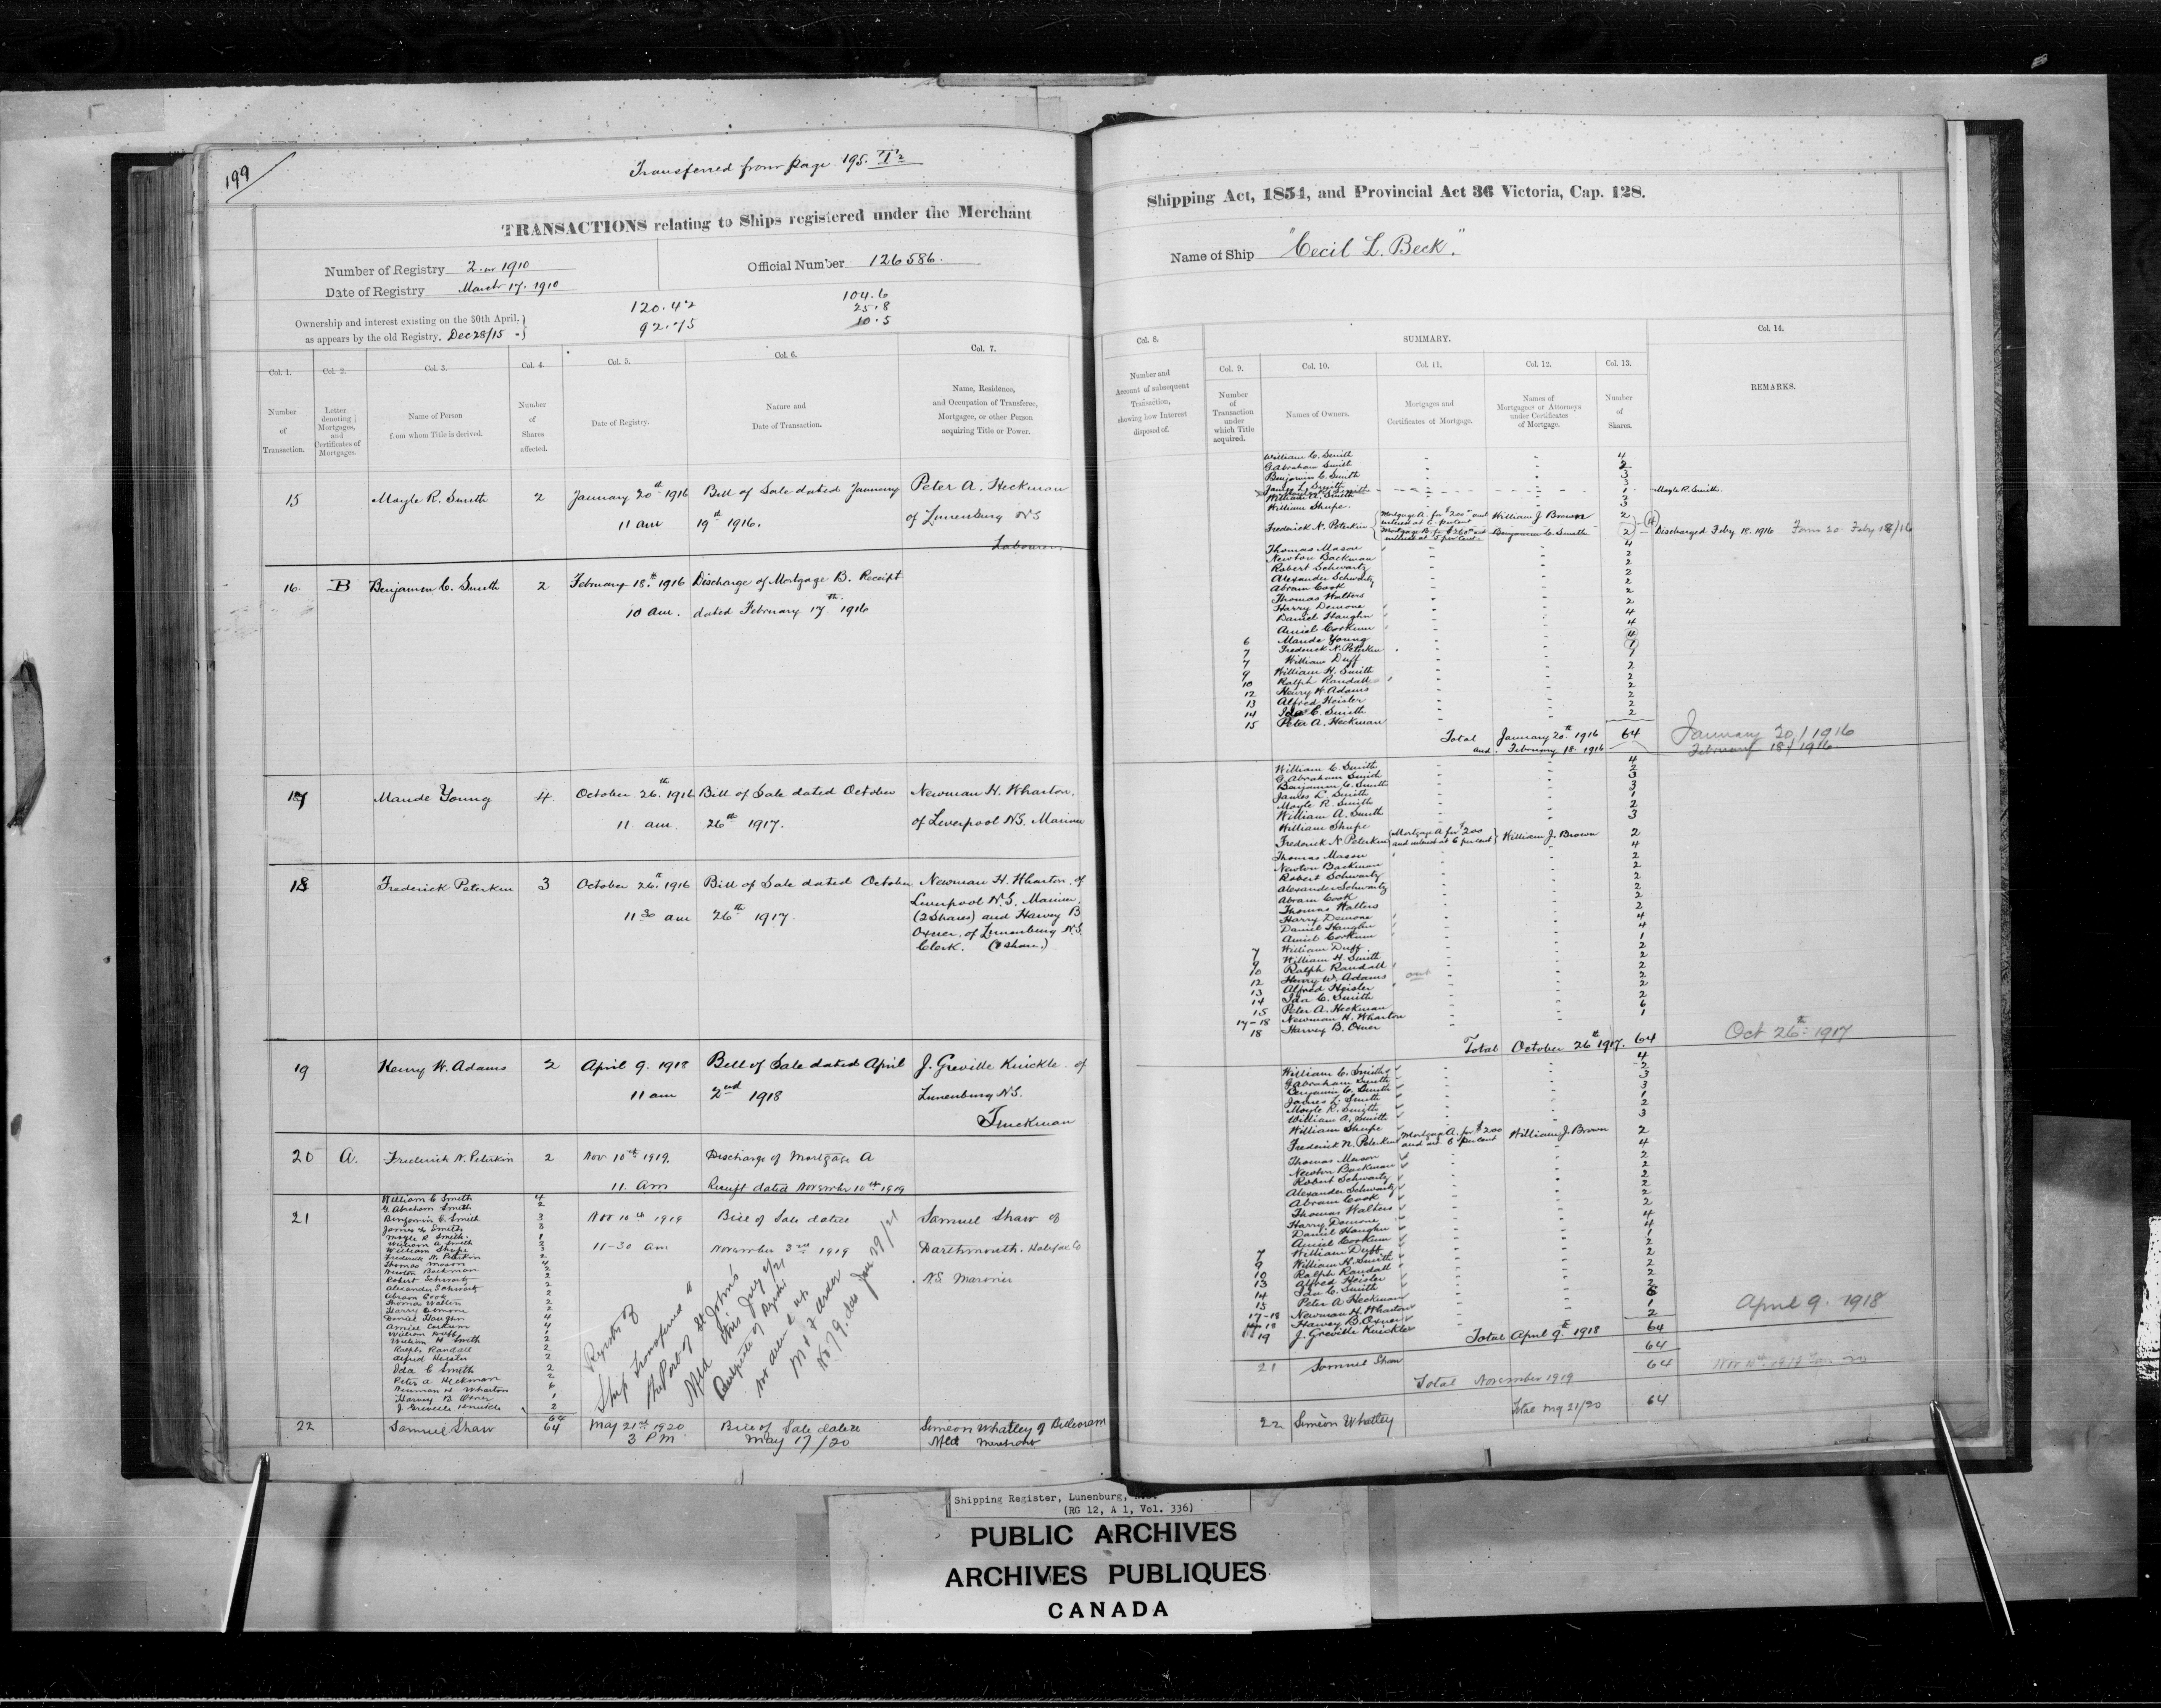 199
Transferred from page 195. T2
TRANSACTIONS relating to Ships registered under the Merchant
Number of Registry 2 in 1910
Date of Registry March 17. 1910
Official Number 126586.
Ownership and interest existing on the 30th April,
as appears by the old Registry. Dec 28/15
120.42
92.75
104.6
25.8
10.5
Col. 1.
Number
of
Transaction.
Col. 2.
Letter
denoting
Mortgages,
and
Certificates of
Mortgages.
Col. 3.
Name of Person
from whom Title is derived.
Col. 4.
Number
of
Shares
affected.
Col. 5.
Date of Registry.
Col. 6.
Nature and
Date of Transaction.
Col. 7.
Name, Residence,
and Occupation of Transferee,
Mortgagee, or other Person
acquiring Title or Power.
15 Moyle R. Smith 2 January 20th 1916 Bill of Sale dated January Peter A. Heckman
11 am 19th 1916. of Lunenburg NS
Labourer
16. B Benjamin C. Smith 2 February 18th 1916 Discharge of Mortgage B. Receipt
10 am. dated February 17th 1916
17 Maude Young 4 October 26th 1916 Bill of Sale dated October Newman H. Wharton.
11 am. 26th 1917. of Liverpool N.S. Mariner
18 Frederick Peterkin 3 October 26th 1916 Bill of Sale dated October Newman H. Wharton, of
11 30 am 26th 1917. Liverpool N.S. Mariner.
(2 Shares) and Harvey B
Oxner, of Lunenburg N.S.
Clerk. (1 share.)
19 Henry W. Adams 2 April 9. 1918 Bill of Sale dated April J. Greville Knickle of
11 am 2nd 1918 Lunenburg N.S.
Truckman
20 A. Frederick N. Peterkin 2 Nov 10th 1919. Discharge of Mortgage A
11. am Receipt dated November 10th 1919
21 Nov 10th 1919 Bill of Sale dated Samuel Shaw of
11-30 am November 3rd 1919 Dartmouth. Halifax Co
N.S. Mariner
William C Smith 4
G. Abraham Smith 2
Benjamin C. Smith 3
James L Smith 3
Moyle R Smith 1
William A Smith 2
William Shupe 3
Frederick N. Peterkin 2
Thomas Mason 4
Newton Backman 2
Robert Schwartz 2
Alexander Schwartz 2
Abram Cook 2
Thomas Walters 2
Harry Demone 2
Daniel Haughn 4
Amiel Corkum 4
William Duff 1
William H Smith 2
Ralph Randall 2
Alfred Heisler 2
Ida C Smith 2
Peter A Heckman 2
Newman H Wharton 6
Harvey B Oxner 1
J Greville Knickle 2
64
Registry of
Ship transferred to
the Port of St John's
Nfld this
Jan 29/21
22 Samuel Shaw 64 May 21st 1920 Bill of Sale dated Simeon Whatley of Belleoram
3 PM May 17/20 Nfld Merchant
Shipping Act, 1854, and Provincial Act 36 Victoria, Cap. 128.
Name of Ship "Cecil L. Beck".
Col. 8.
Number and
Account of subsequent
Transaction,
showing how Interest
disposed of.
SUMMARY.
Col. 9.
Number
of
Transaction
under
which Title
acquired.
Col. 10.
Names of Owners.
Col. 11.
Mortgages and
Certificates of Mortgage.
Col. 12.
Names of
Mortgagees or Attorneys
under Certificates
of Mortgage.
Col. 13.
Number
of
Shares.
Col. 14.
REMARKS.
William C. Smith 4
G Abraham Smith 2
Benjamin C. Smith 3
James L. Smith 3
1 Moyle R. Smith.
William A. Smith 2
William Shupe 3
Frederick N. Peterkin Mortgage A. for $200 and interest at 6 percent William J Brown 2
Mortgage B. for $260 and interest at 5 per cent Benjamin C. Smith 2 Discharged Feby 18. 1916 Form 20 Feby 18/16
Thomas Mason 4
Newton Backman 2
Robert Schwartz 2
Alexander Schwartz 2
Abram Cook 2
Thomas Walters 2
Harry Demone 2
Daniel Haughn 4
Amiel Corkum 4
6 Maude Young 4
7 Frederick N. Peterkin 1
7 William Duff 1
9 William H. Smith 2
10 Ralph Randall 2
12 Henry W. Adams 2
13 Alfred Heisler 2
14 Ida C. Smith 2
15 Peter A. Heckman 2
Total January 20th 1916 64 January 20/1916
and February 18. 1916 February 18/1916
William C. Smith 4
G Abraham Smith 2
Benjamin C. Smith 3
James L. Smith 3
Moyle R. Smith 1
William A. Smith 2
William Shupe 3
Frederick N Peterkin Mortgage A for $200 and interest at 6 per cent William J. Brown 2
Thomas Mason 4
Newton Backman 2
Robert Schwartz 2
Alexander Schwartz 2
Abram Cook 2
Thomas Walters 2
Harry Demone 2
Daniel Haughn 4
Amiel Corkum 4
7 William Duff 1
9 William H. Smith 2
10 Ralph Randall 2
12 Henry W. Adams 2
13 Alfred Heisler 2
14 Ida C. Smith 2
15 Peter A. Heckman 2
17-18 Newman H. Wharton 6
18 Harvey B. Oxner 1
Total October 26th 1917. 64 Oct 26th 1917
William C. Smith 4
G Abraham Smith 2
Benjamin C. Smith 3
James L. Smith 3
Moyle R. Smith 1
William A. Smith 2
William Shupe 3
Frederick N. Peterkin Mortgage A. for $200 and int 6 percent William J. Brown 2
Thomas Mason 4
Newton Backman 2
Robert Schwartz 2
Alexander Schwartz 2
Abram Cook 2
Thomas Walters 2
Harry Demone 2
Daniel Haughn 4
Amiel Corkum 4
7 William Duff 1
9 William H. Smith 2
10 Ralph Randall 2
13 Alfred Heisler 2
14 Ida C. Smith 2
15 Peter A Heckman 2
17-18 Newman H. Wharton 6
18 Harvey B. Oxner 1
19 J. Greville Knickle 2
Total April 9th 1918 64 April 9. 1918
64
21 Samuel Shaw 64
Total November 1919 Nov 10th 1919
22 Simeon Whatley 64
Total May 21/20
Shipping Register, Lunenburg,
(RG 12, A 1, Vol. 336)
PUBLIC ARCHIVES
ARCHIVES PUBLIQUES
CANADA